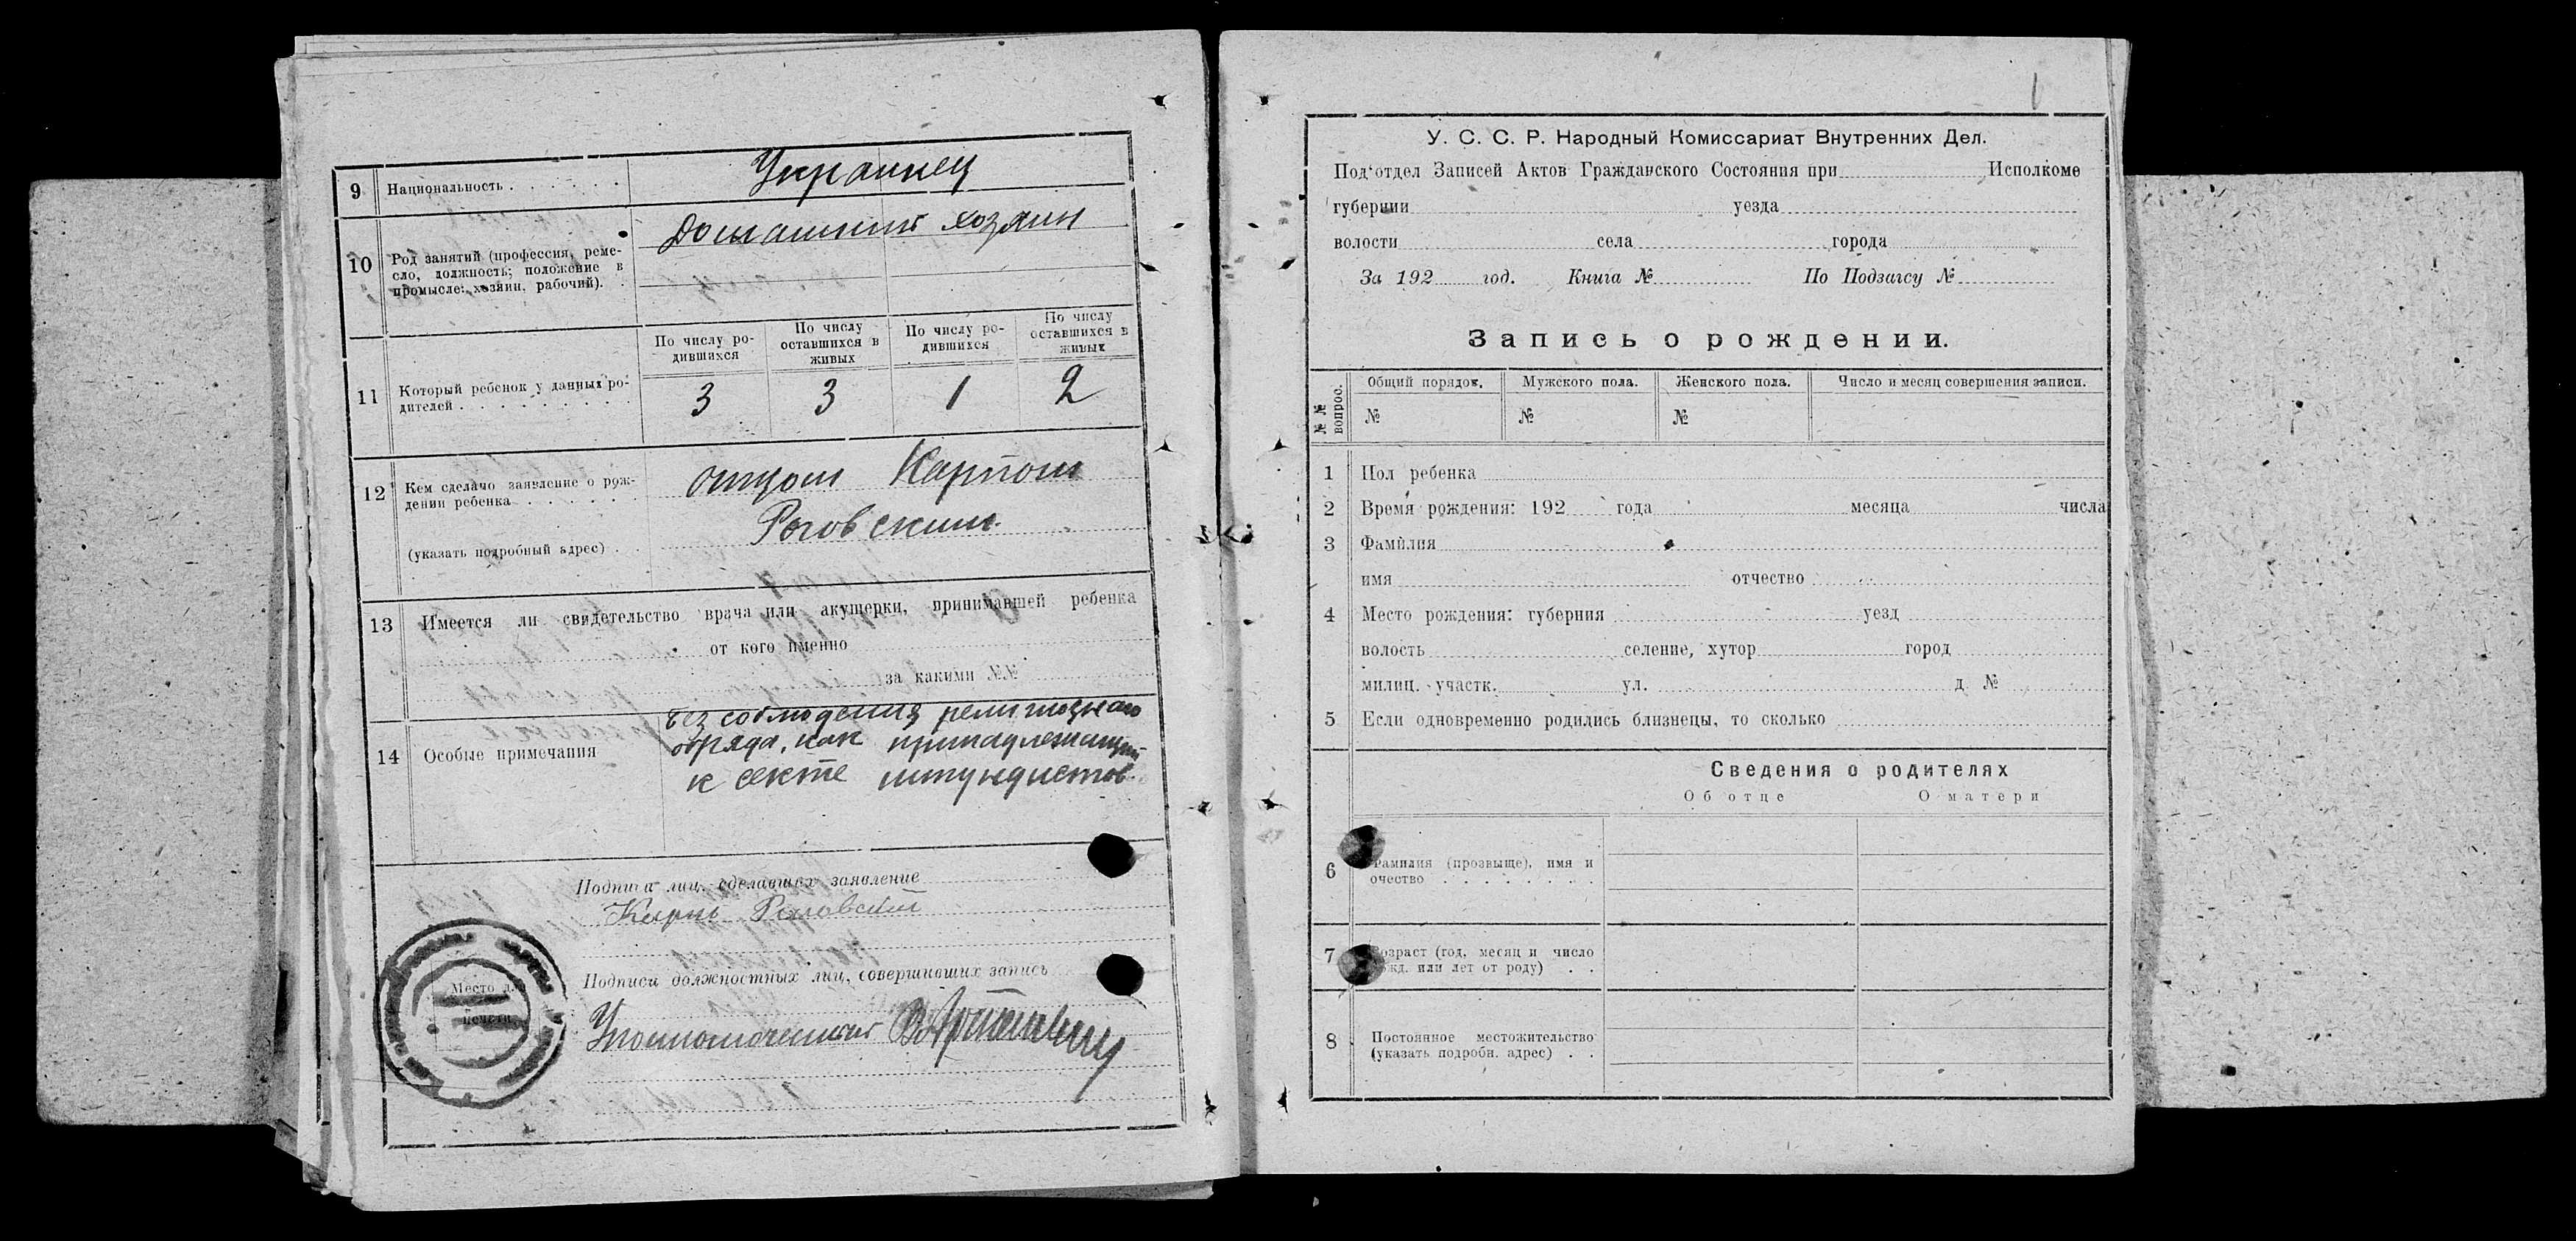 9 Национальность . . . . . .
Украинец
10 Род занятий (профессия, реме-
сло, должность; положение в
промысле: хозяин, рабочий). .
Домашний хозяин
По числу ро-
дившихся
По числу
оставшихся в
живых
По числу ро-
дившихся
По числу
оставшихся в
живых
11 Который ребенок у данных ро-
дителей . . . . . . . . .
3 3 1 2
12 Кем сделано заявление о рож-
дении ребенка . . . . . .
(указать подробный адрес) . .
отцом Карпом
Роговским.
13 Имеется ли свидетельство врача или акушерки, принимавшей ребенка
от кого именно
за какими №№
14 Особые примечания
без соблюдения религиозного
обряда, как принадлежащий
к секте штундистов.
Подписи лиц, сделавших заявление
Карпь Роговский
Место для
печати
Подписи должностных лиц, совершивших запись
Уполномоченный
У. С. С. Р. Народный Комиссариат Внутренних Дел.
Под'отдел Записей Актов Гражданского Состояния при Исполкоме
губернии уезда
волости села города
За 192 год. Книга № По Подзагсу №
Запись о рождении.
№ №
вопрос.
Общий порядок. Мужского пола. Женского пола. Число и месяц совершения записи.
№ № №
1 Пол ребенка
2 Время рождения: 192 года месяца числа
3 Фамилия
имя отчество
4 Место рождения: губерния уезд
волость селение, хутор город
милиц. участк. ул. д №
5 Если одновременно родились близнецы, то сколько
Сведения о родителях
Об отце О матери
6 Фамилия (прозвыще), имя и
очество . . . . . . . .
7 Возраст (год, месяц и число
рожд. или лет от роду) . .
8 Постоянное местожительство
(указать подробн. адрес) . .